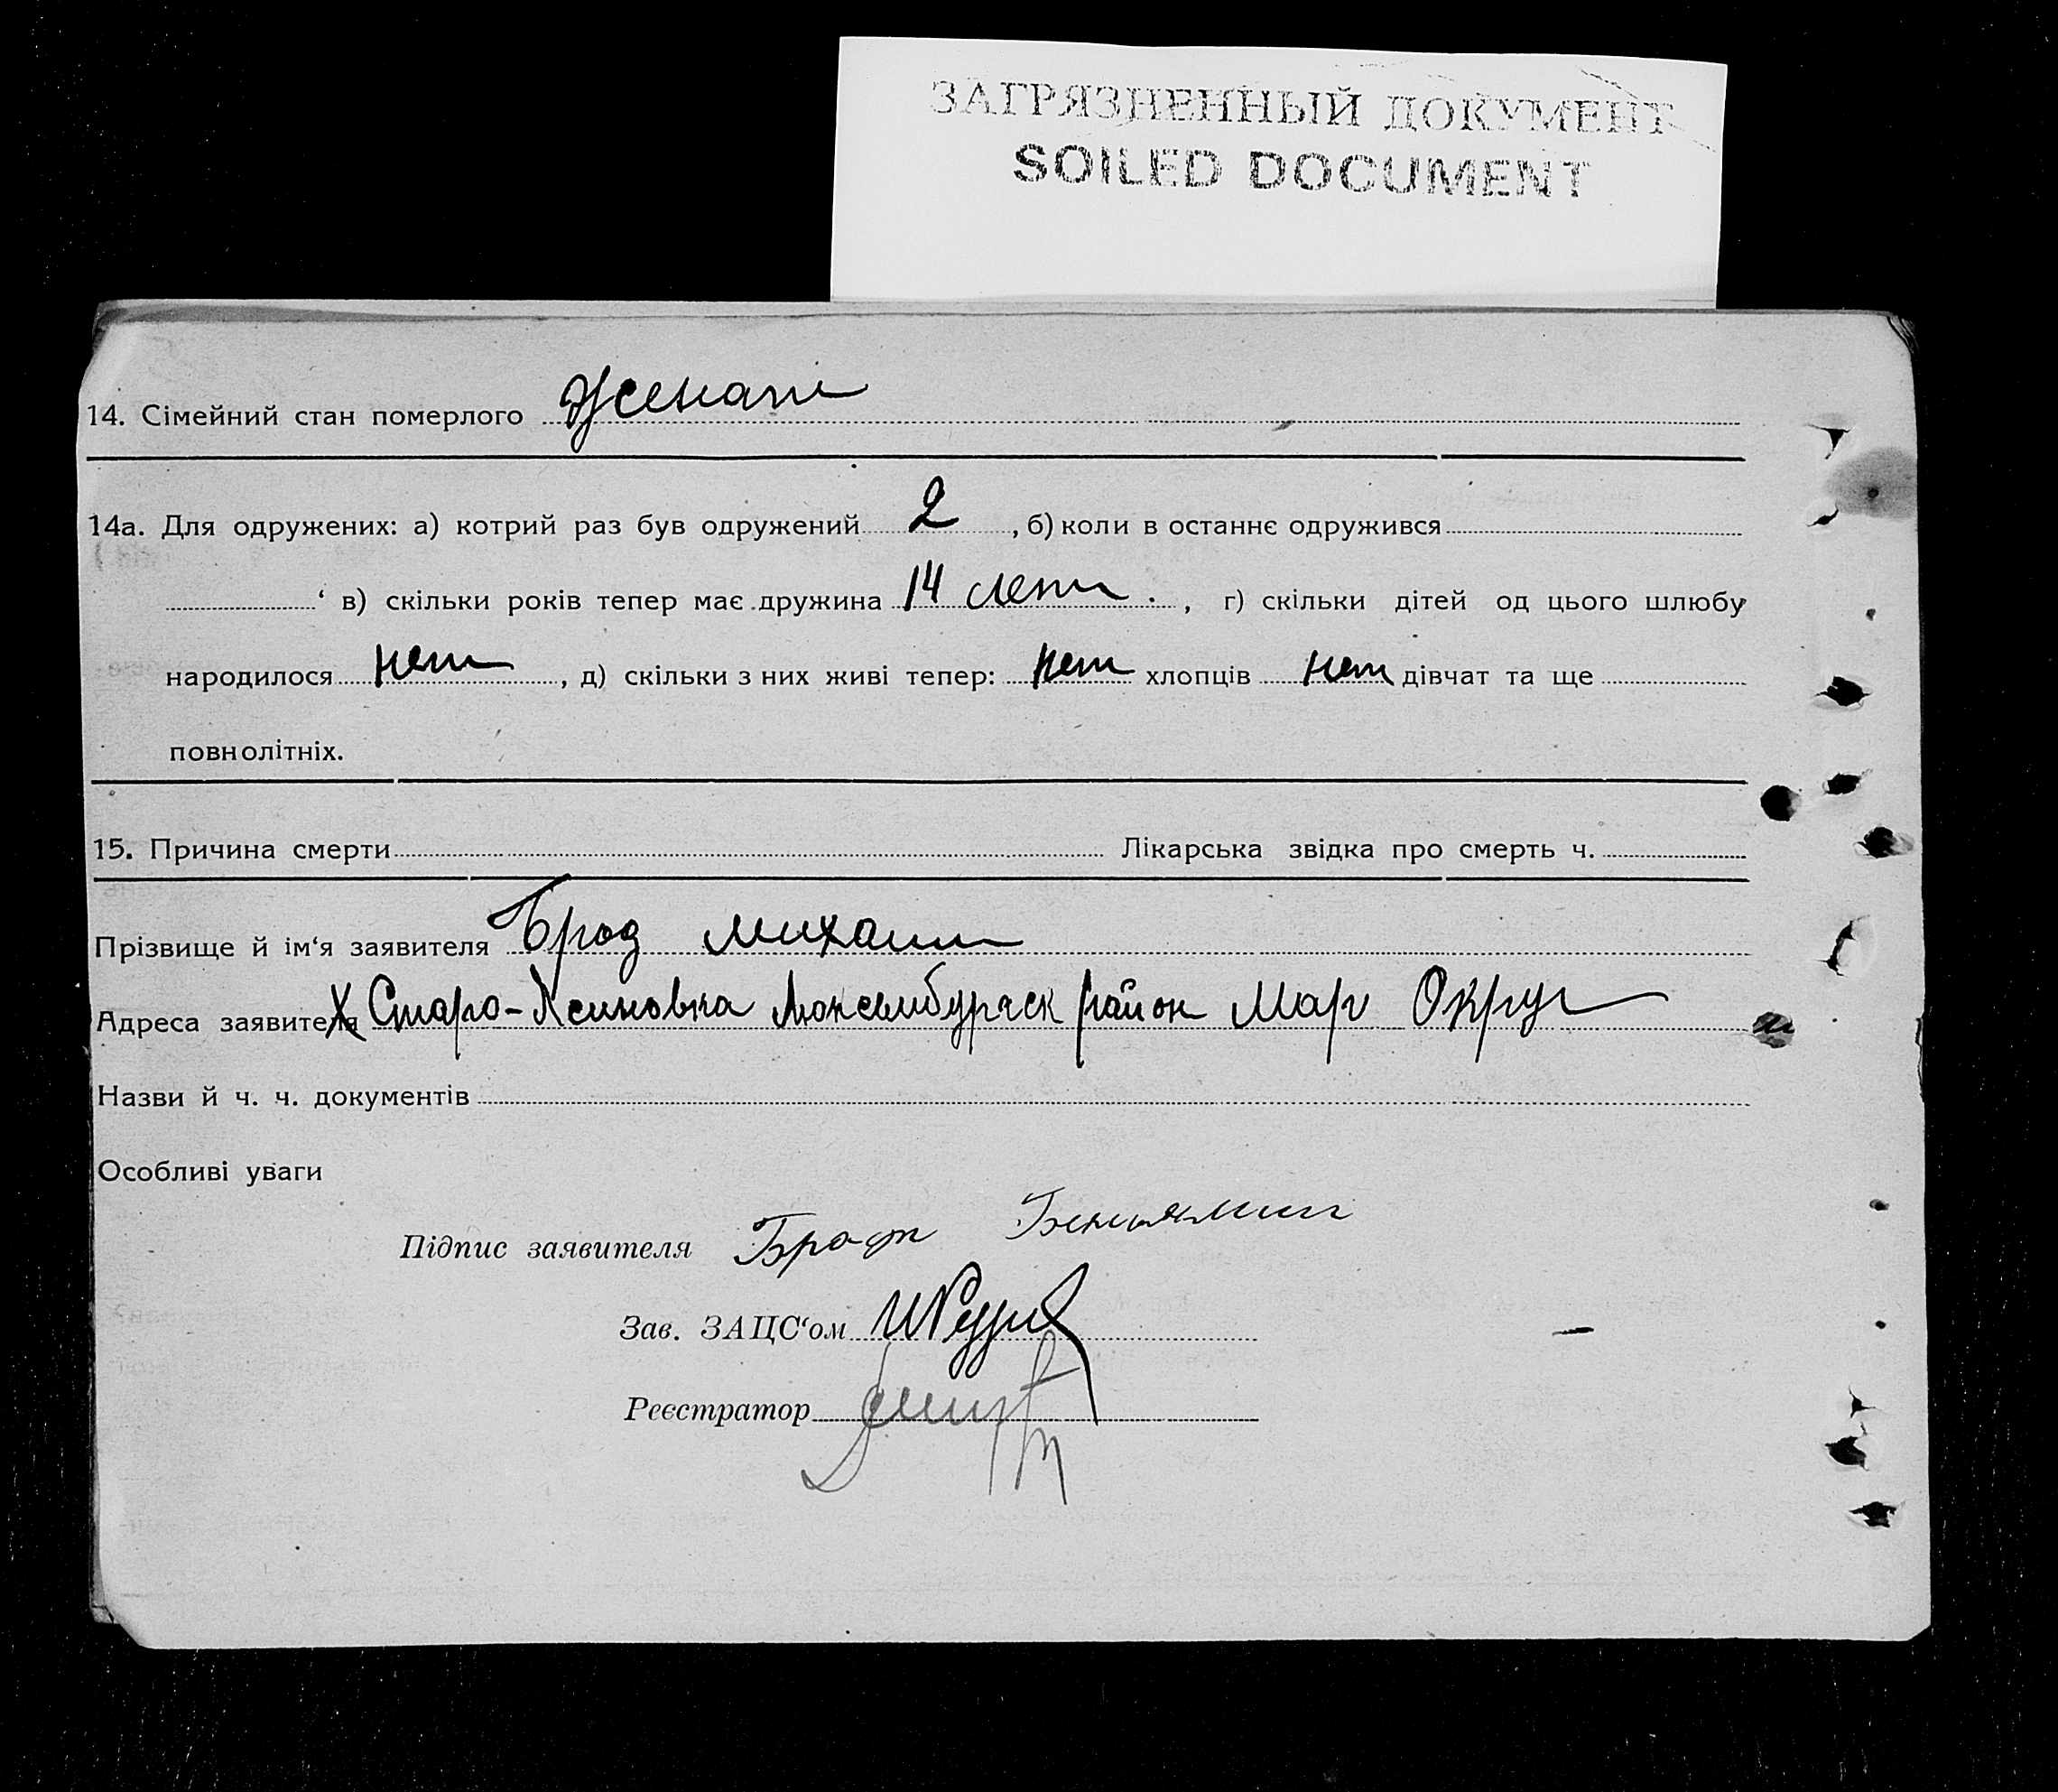 ЗАГРЯЗНЕННЫЙ ДОКУМЕНТ
SOILED DOCUMENT
14. Сімейний стан померлого женат
14а. Для одружених: а) котрий раз був одружений 2, б) коли в останнє одружився
‘ в) скільки років тепер має дружина 14 лет., г) скільки дітей од цього шлюбу
народилося нет, д) скільки з них живі тепер: нет хлопців нет дівчат та ще
повнолітніх.
15. Причина смерти Лікарська звідка про смерть ч.
Прізвище й ім‘я заявителя Брод михаил
Адреса заявителя Х Старо- Люксембургск район Мар Округ
Назви й ч. ч. документів
Особливі уваги
Підпис заявителя Брот Беньямин
Зав. ЗАЦС‘ом
Реєстратор